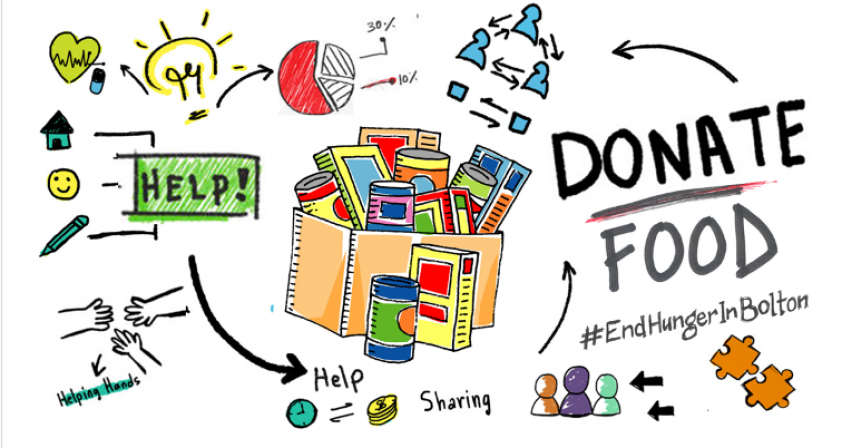 30%
10%
HELP!
DONATE
FOOD
#EndHungerInBolton
Helping Hands
Help
Sharing